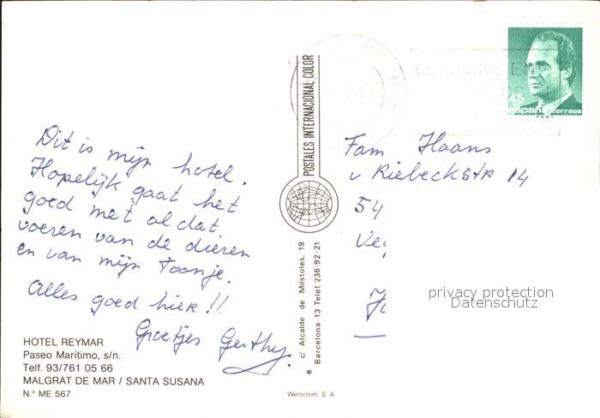 Dit is mijn hotel.
Hopelijk gaat het
goed met al dat
voeren van de dieren
en van mijn Toontje.
Alles goed hier!!
Groetjes Gerthy.
HOTEL REYMAR
Paseo Marítimo, s/n.
Telf. 93/761 05 66
MALGRAT DE MAR / SANTA SUSANA
N.º ME 567
POSTALES INTERNACIONAL COLOR
c/ Alcalde de Móstoles, 19
* Barcelona-13 Telef. 236-92-21
Werticrom, S. A.
45
españa
correos
Fam Haans
v Riebeckstr 14
54
privacy protection
Datenschutz